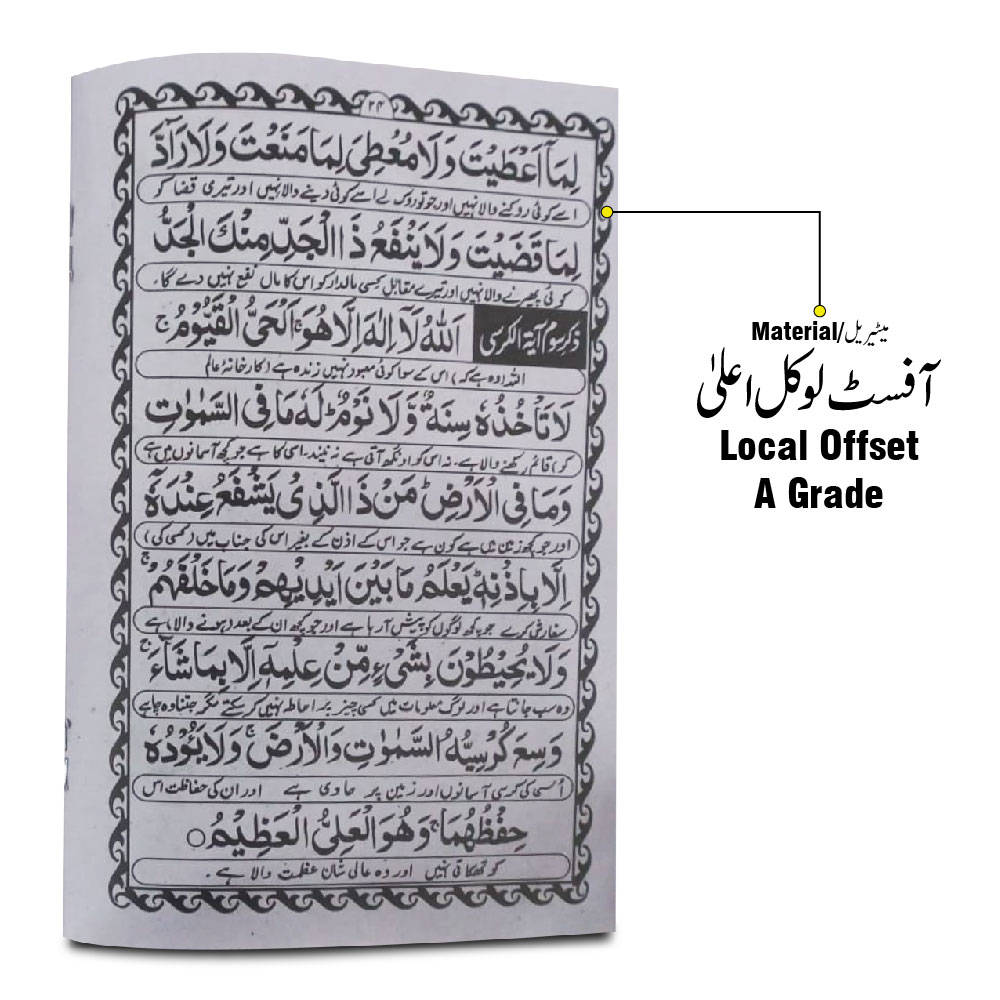 ۲۴
لِمَآ اَعْطَیْتَ وَلَا مُعْطِیَ لِمَا مَنَعْتَ وَلَا رَآدَّ
اسے کوئی روکنے والا نہیں اور جو تو روک لے اسے کوئی دینے والا نہیں اور تیری قضا کو
لِمَا قَضَیْتَ وَلَا یَنْفَعُ ذَا الْجَدِّ مِنْكَ الْجَدُّ
کوئی پھیرنے والا نہیں اور تیرے مقابل کسی مالدار کو اس کا مال نفع نہیں دے گا۔
ذکر سوم آیۃ الکرسی اَللّٰهُ لَآ اِلٰهَ اِلَّا هُوَ ۚ اَلْحَیُّ الْقَیُّوْمُ ۚ
اللہ (وہ ہے کہ) اس کے سوا کوئی معبود نہیں زندہ ہے (کارخانۂ عالم
لَا تَاْخُذُهٗ سِنَةٌ وَّلَا نَوْمٌ ؕ لَهٗ مَا فِی السَّمٰوٰتِ
کو) قائم رکھنے والا ہے۔ نہ اس کو اونگھ آتی ہے نہ نیند۔ اسی کا ہے جو کچھ آسمانوں میں ہے
وَمَا فِی الْاَرْضِ ؕ مَنْ ذَا الَّذِیْ یَشْفَعُ عِنْدَهٗٓ
اور جو کچھ زمین میں ہے کون ہے جو اس کے اذن کے بغیر اس کی جناب میں (کسی کی)
اِلَّا بِاِذْنِهٖ ؕ یَعْلَمُ مَا بَیْنَ اَیْدِیْهِمْ وَمَا خَلْفَهُمْ ۚ
سفارش کرے جو کچھ لوگوں کو پیش آ رہا ہے اور جو کچھ ان کے بعد ہونے والا ہے
وَلَا یُحِیْطُوْنَ بِشَیْءٍ مِّنْ عِلْمِهٖٓ اِلَّا بِمَا شَآءَ ۚ
وہ سب جانتا ہے اور لوگ معلومات میں کسی چیز پر احاطہ نہیں کر سکتے مگر جتنا وہ چاہے
وَسِعَ كُرْسِیُّهُ السَّمٰوٰتِ وَالْاَرْضَ ۚ وَلَا یَـُٔوْدُهٗ
اُسی کی کرسی آسمانوں اور زمین پر حاوی ہے اور ان کی حفاظت اس
حِفْظُهُمَا ۚ وَهُوَ الْعَلِیُّ الْعَظِیْمُ ○
کو تھکاتی نہیں اور وہ عالی شان عظمت والا ہے۔
Material/میٹیریل
آفسٹ لوکل اعلیٰ
Local Offset
A Grade